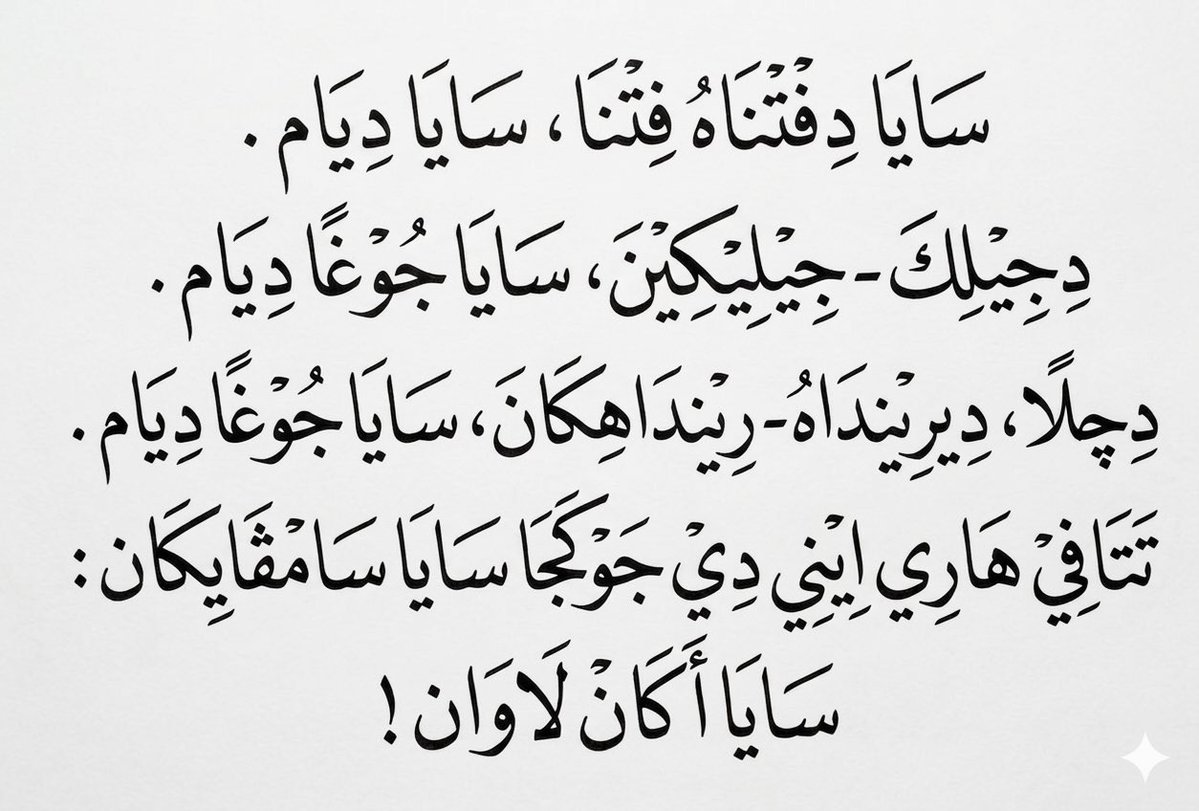 سَايَا دِفْتْنَاهُ فِتْنَا، سَايَا دِيَام.
دِجِيْلِكَ-جِيْلِيْكِيْنَ، سَايَا جُوْغًا دِيَام.
دِچلًا، دِيرِيْنْدَاهُ-رِيْنْدَاهِكَانَ، سَايَا جُوْغًا دِيَام.
تَتَافِيْ هَارِي اِيْنِي دِيْ جَوْكَجَا سَايَا سَامْڤَايِكَان:
سَايَا أَكَانْ لَاوَان!